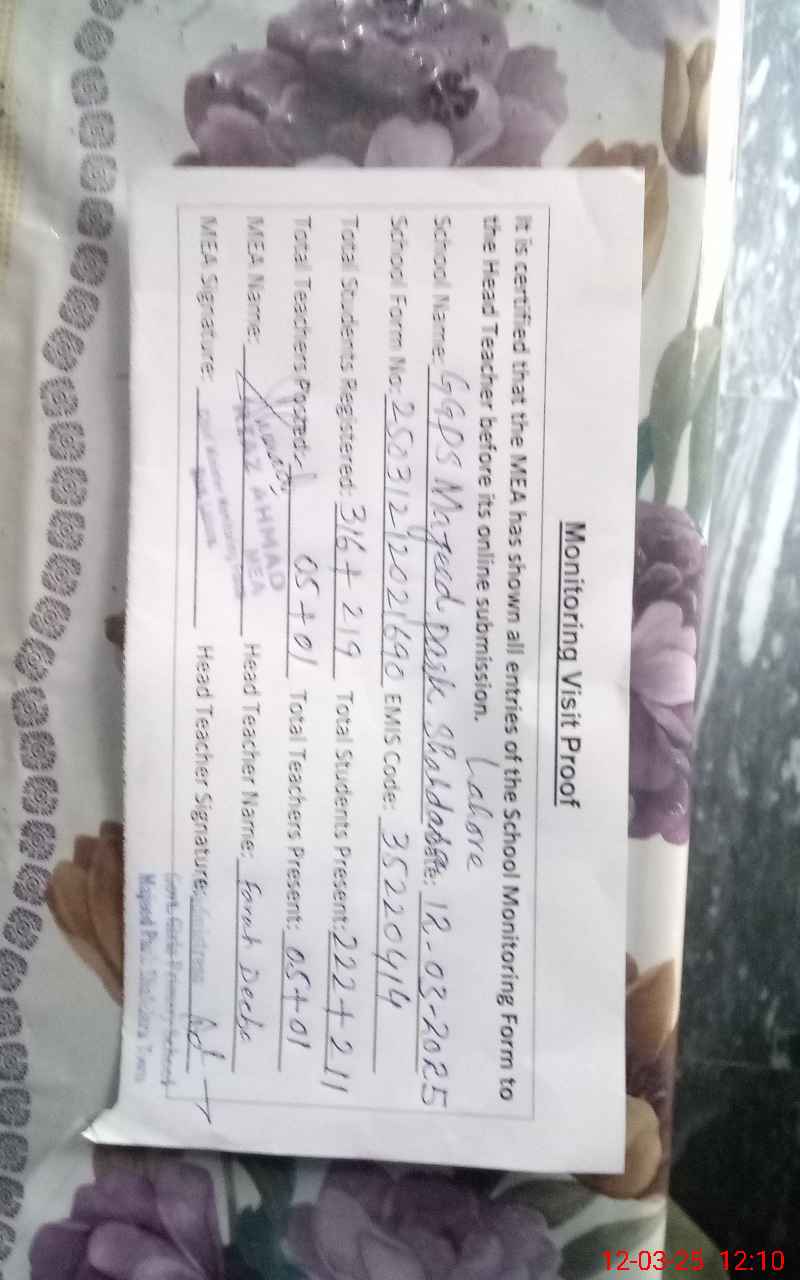 Monitoring Visit Proof
It is certified that the MEA has shown all entries of the School Monitoring Form to
the Head Teacher before its online submission.
Lahore
School Name: GGPS Majeed park Shahdara Date: 12-03-2025
School Form No: 250312/2021690 EMIS Code: 35220414
Total Students Registered: 316+219 Total Students Present: 222+211
Total Teachers Posted: 05+01 Total Teachers Present: 05+01
MEA Name: Head Teacher Name: Farah Deeba
AHMAD
MEA
MEA Signature: Head Teacher Signature:
Govt. Girls Primary School
Majeed Park Shahdara Town
12-03-25 12:10